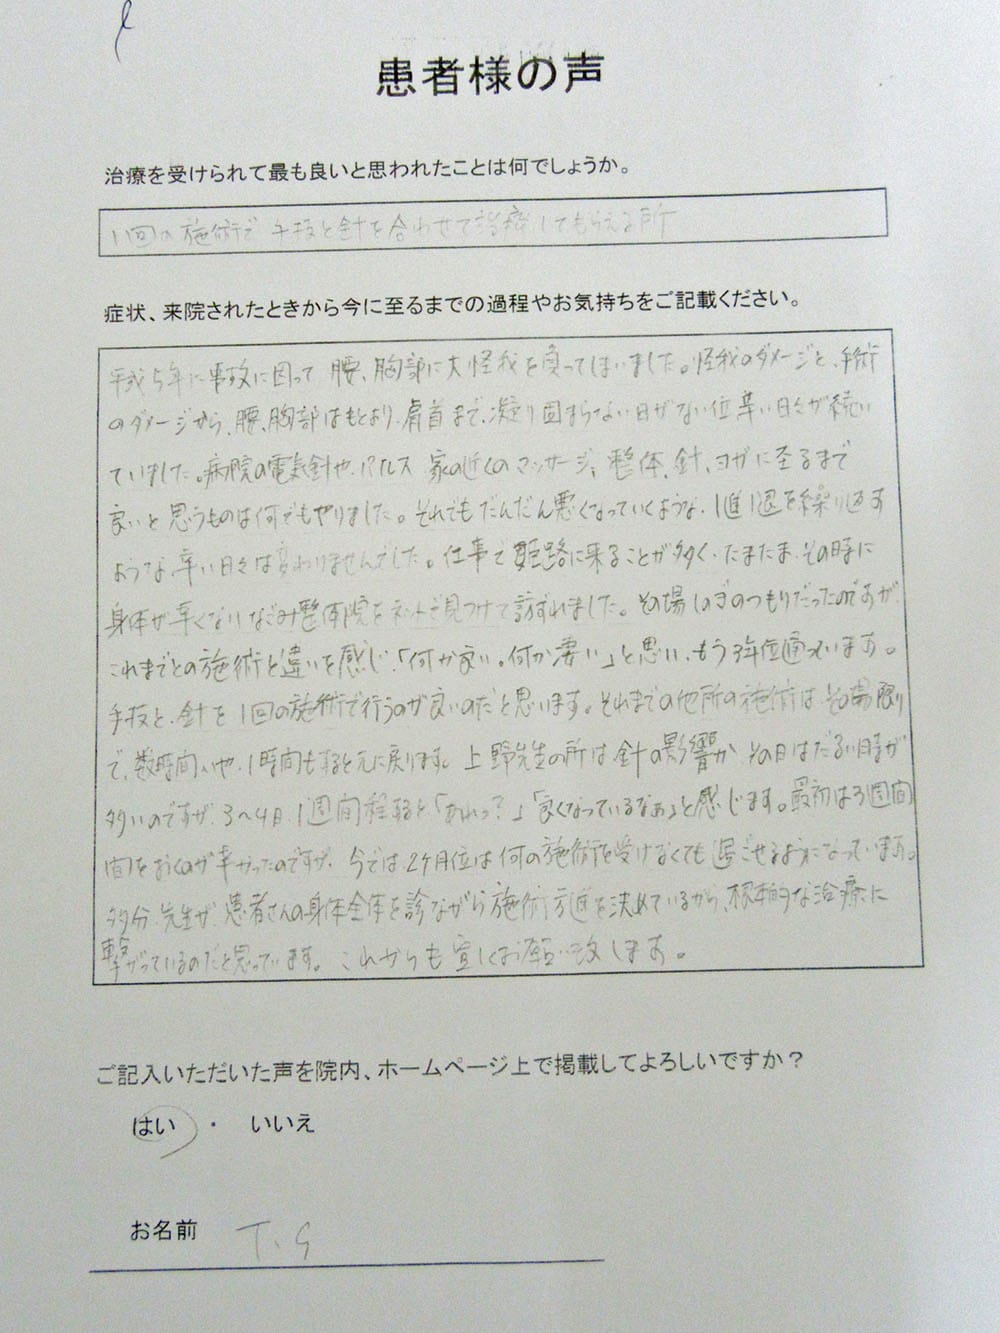 患者様の声
治療を受けられて最も良いと思われたことは何でしょうか。
1回の施術で 手技と針を合わせて治療してもらえる所
症状、来院されたときから今に至るまでの過程やお気持ちをご記載ください。
平成5年に事故に因って 腰、胸部に大怪我を負ってしまいました。怪我のダメージと、手術
のダメージから、腰、胸部はもとより、肩首まで、凝り固まらない日がない位 辛い日々が続い
ていました。病院の電気針や、パルス 家の近くのマッサージ、整体、針、ヨガに至るまで
良いと思うものは何でもやりました。それでもだんだん悪くなっていくような、1進1退を繰り返す
ような、辛い日々は変わりませんでした。仕事で姫路に来ることが多く、たまたま、その時に
身体が辛くなり なごみ整体院をネットで見つけて訪ずれました。その場しのぎのつもりだったのですが、
これまでとの施術と違いを感じ、「何か良い。何か凄い」と思い、もう3年位通っています。
手技と、針を 1回の施術で行うのが良いのだと思います。それまでの他所の施術は、その場限り
で、数時間いや、1時間もすると元に戻ります。上野先生の所は 針の影響か その日はだるい時が
多いのですが、3〜4日、1週間程すると「あれっ?」「良くなっているなぁ」と感じます。最初は3週間
間をおくのが辛かったのですが、今では、2ケ月位は何の施術を受けなくても過ごせるようになっています。
多分、先生が、患者さんの身体全体を診ながら施術方進を決めているから、根本的な治療に
繋がっているのだと思っています。これからも宜しくお願い致します。
ご記入いただいた声を院内、ホームページ上で掲載してよろしいですか？
はい ・ いいえ
お名前 T.G